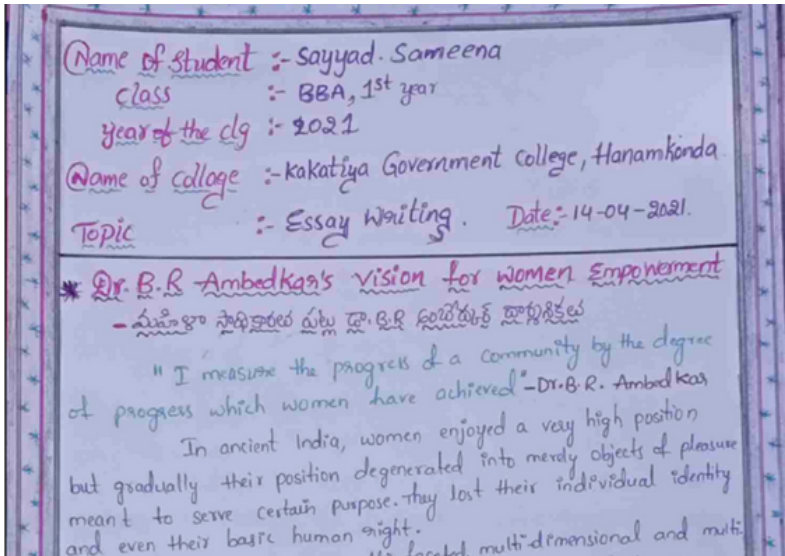 Name of student :- Sayyad. Sameena
class :- BBA, 1st year
year of the clg :- 2021
Name of collage :- Kakatiya Government College, Hanamkonda
Topic :- Essay Writing. Date:- 14-04-2021.
* Dr. B.R Ambedkar's vision for women Empowerment
- మహిళా సాధికారత పట్ల డా. B.R అంబేద్కర్ దార్శనికత
" I measure the progress of a community by the degree
of progress which women have achieved" - Dr. B.R. Ambedkar
In ancient India, women enjoyed a very high position
but gradually their position degenerated into merely objects of pleasure
meant to serve certain purpose. They lost their individual identity
and even their basic human right.
faceted multi-dimensional and multi